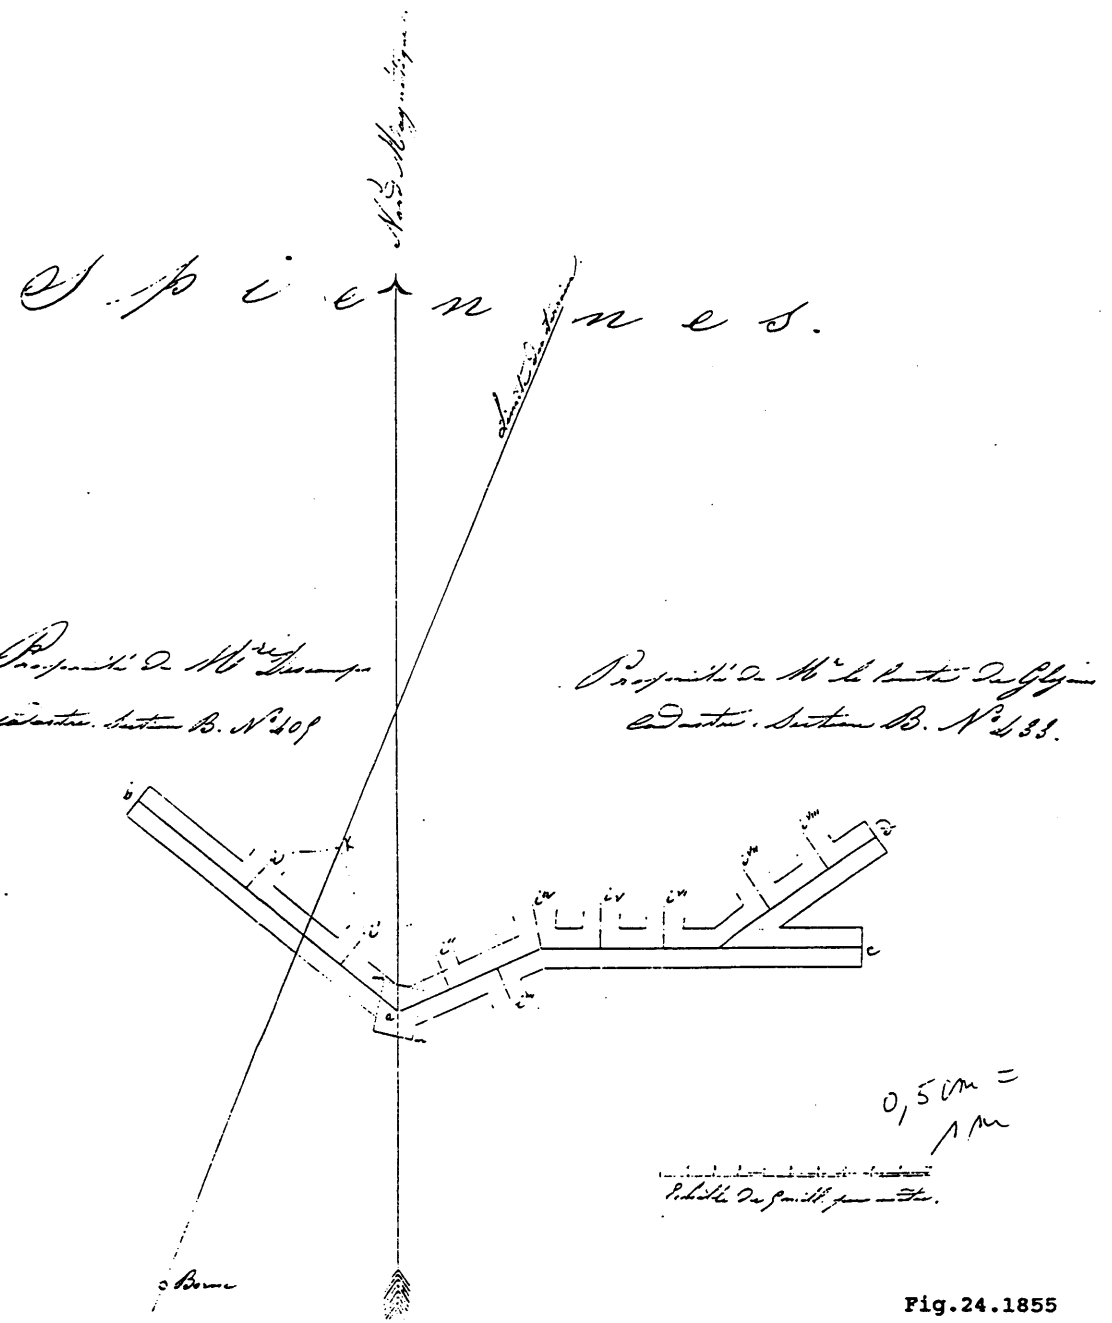 Nord Magnétique.
Spiennes.
Limite du terrain
Propriété de Mr Descamps
Cadastre. Section B. No 409
Propriété de Mr le Comte de
Cadastre. Section B. No 433.
b
i
x
i'
i''
i'''
iIV
iV
iVI
iVII
iVIII
d
a
c
0,5 cm =
1 m
Echelle de 5 mill. par mètre.
Borne
Fig.24.1855